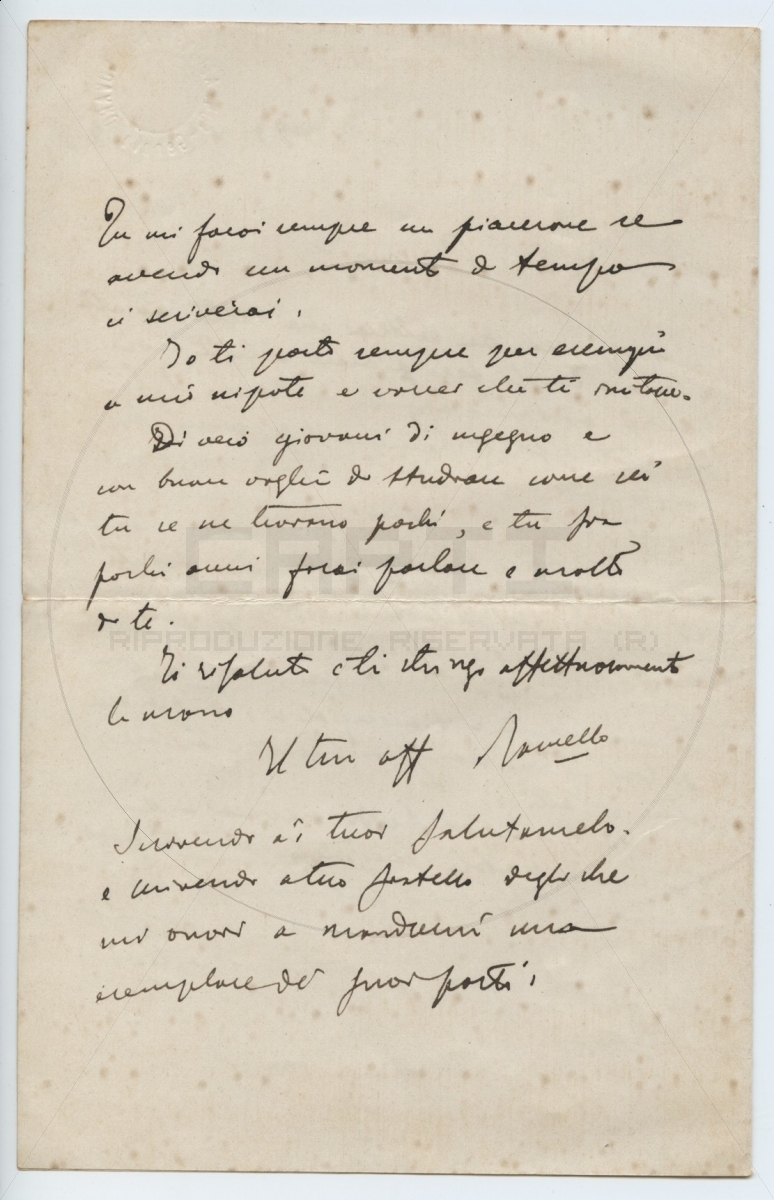 Tu mi farai sempre un piacerone se
avendo un momento di tempo
ci scriverai.
Io ti porto sempre per esempio
a mio nipote e vorrei che ti imitasse.
Di veri giovani di ingegno e
con buona voglia di studiare come sei
tu se ne trovano pochi, e tu fra
pochi anni farai parlare e molto
di te.
Ti risaluto e ti stringo affettuosamente
la mano
Il tuo aff
Scrivendo ai tuoi salutameli.
e scrivendo a tuo fratello digli che
mi onori a mandarmi una
esemplare dei suoi parti.
CARTE
RIPRODUZIONE RISERVATA (R)